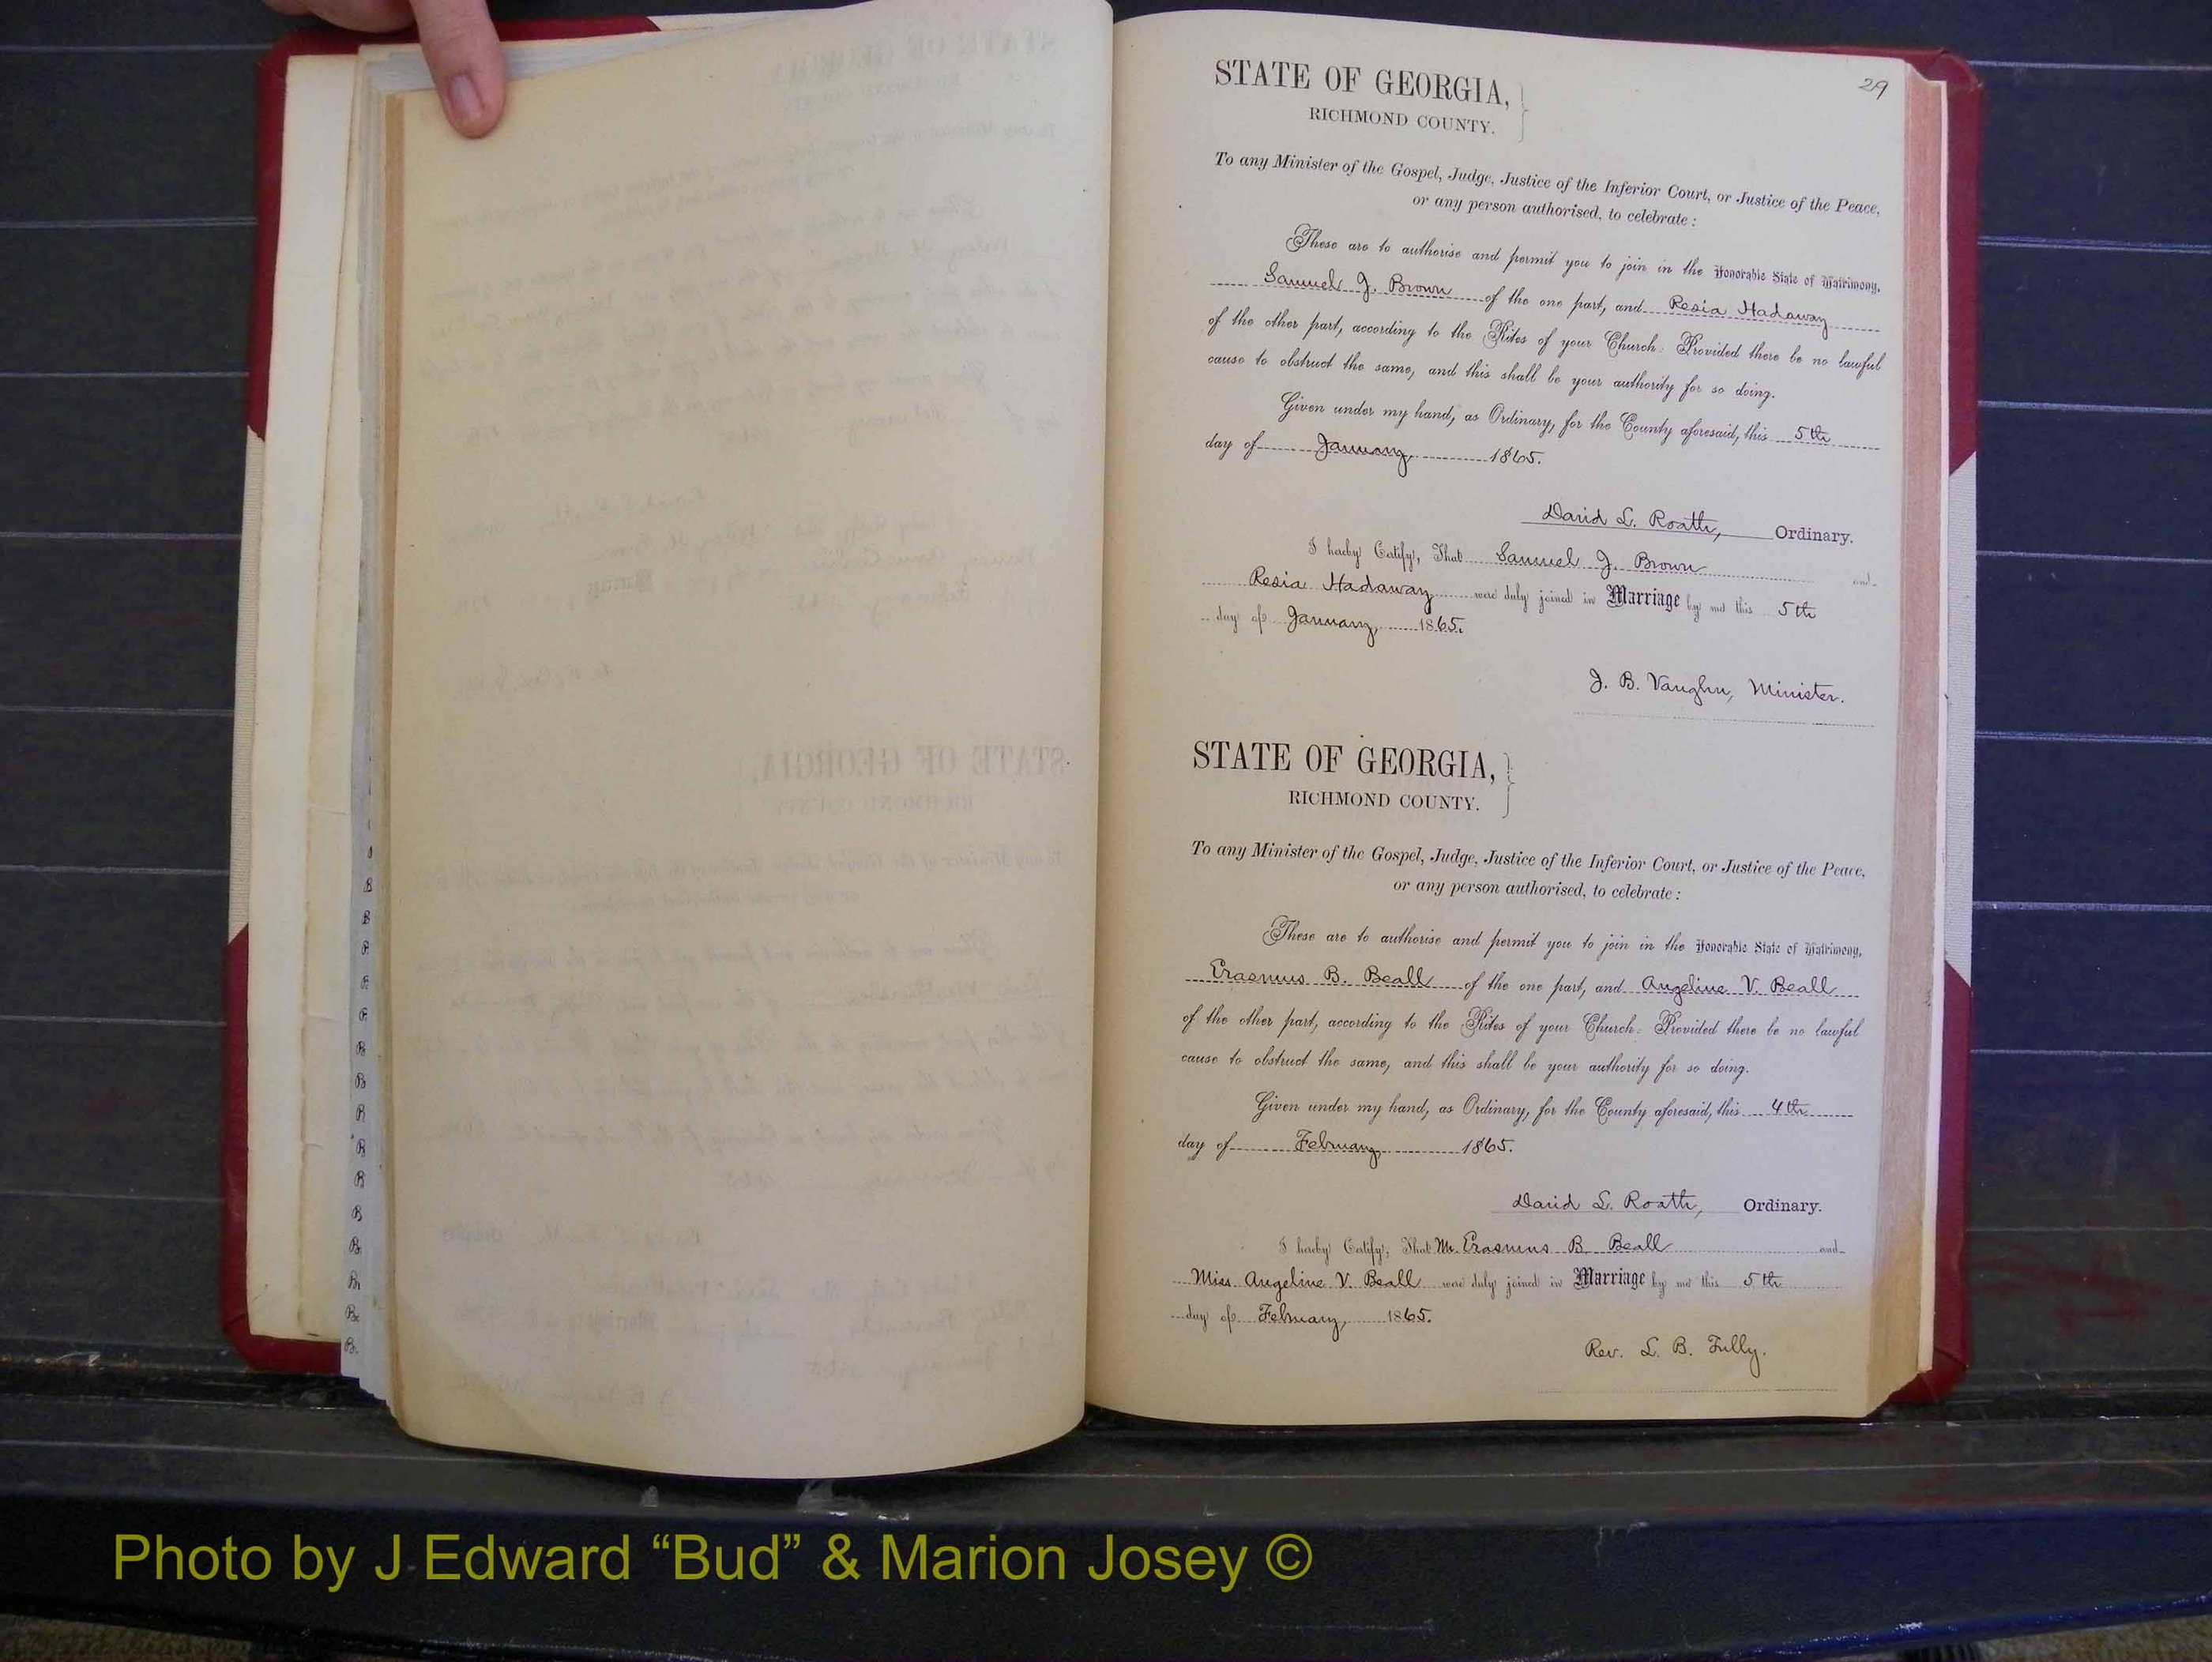 29
STATE OF GEORGIA,
RICHMOND COUNTY.
To any Minister of the Gospel, Judge, Justice of the Inferior Court, or Justice of the Peace,
or any person authorised, to celebrate:
These are to authorise and permit you to join in the Honorable State of Matrimony,
Samuel J. Brown of the one part, and Resia Hadaway
of the other part, according to the Rites of your Church: Provided there be no lawful
cause to obstruct the same, and this shall be your authority for so doing.
Given under my hand, as Ordinary, for the County aforesaid, this 5th
day of January, 1865.
David L. Roath, Ordinary.
I hereby Certify, That Samuel J. Brown and
Resia Hadaway were duly joined in Marriage by me this 5th
day of January, 1865.
J. B. Vaughn, Minister.
STATE OF GEORGIA,
RICHMOND COUNTY.
To any Minister of the Gospel, Judge, Justice of the Inferior Court, or Justice of the Peace,
or any person authorised, to celebrate:
These are to authorise and permit you to join in the Honorable State of Matrimony,
Erasmus B. Beall of the one part, and Angeline V. Beall
of the other part, according to the Rites of your Church: Provided there be no lawful
cause to obstruct the same, and this shall be your authority for so doing.
Given under my hand, as Ordinary, for the County aforesaid, this 4th
day of February 1865.
David L. Roath, Ordinary.
I hereby Certify, That Mr. Erasmus B. Beall and
Miss Angeline V. Beall were duly joined in Marriage by me this 5th
day of February, 1865.
Rev. L. B. Fully.
Photo by J Edward “Bud” & Marion Josey ©